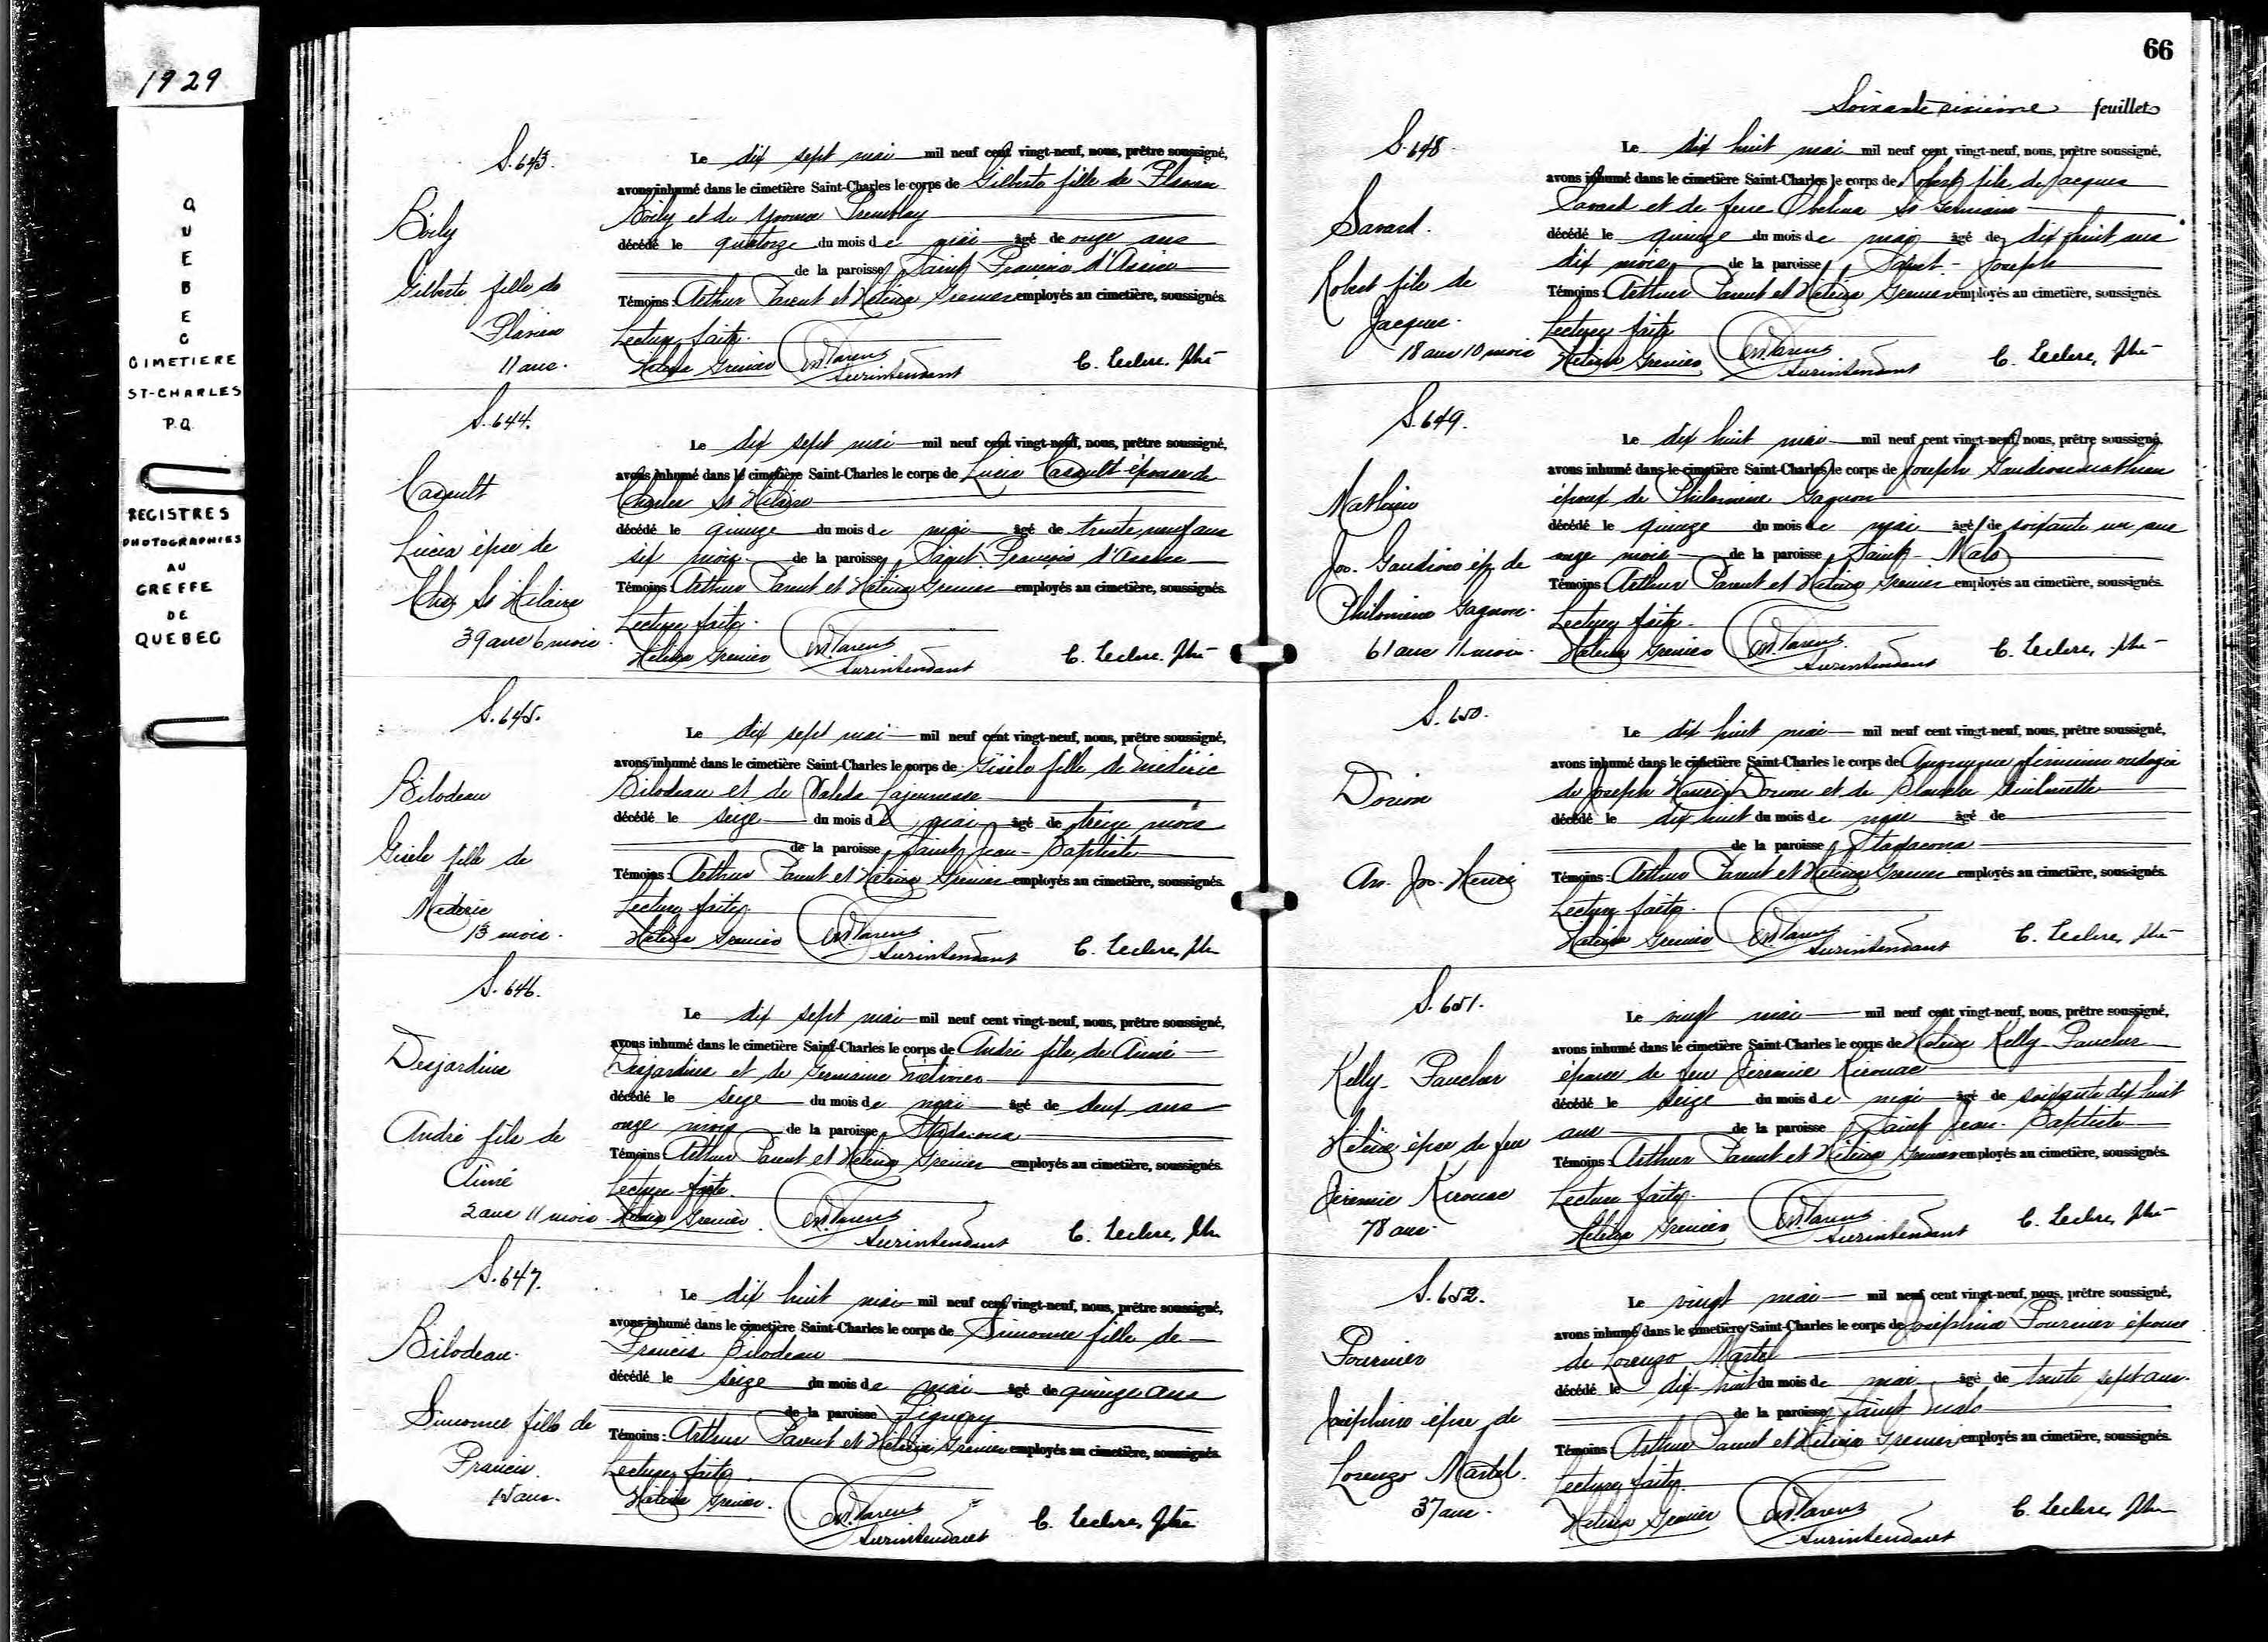 1929
QUEBEC
CIMETIERE
ST-CHARLES
P.Q.
REGISTRES
PHOTOGRAPHIES
AU
GREFFE
DE
QUEBEC
S.643.
Boily
Gilberte fille de
Flavien
11 ans.
Le dix sept mai mil neuf cent vingt-neuf, nous, prêtre soussigné,
avons inhumé dans le cimetière Saint-Charles le corps de Gilberte fille de Flavien
Boily et de Yvonne Tremblay
décédé le quatorze du mois de mai âgé de onze ans
de la paroisse Saint François d'Assise
Témoins: Arthur Parent et Hélina Grenier employés au cimetière, soussignés.
Lecture faite.
Hélina Grenier Art. Parent
Surintendant
C. Leclerc, ptre
S.644.
Casault
Lucia épse de
Chs St Hilaire
39 ans 6 mois
Le dix sept mai mil neuf cent vingt-neuf, nous, prêtre soussigné,
avons inhumé dans le cimetière Saint-Charles le corps de Lucia Casault épouse de
Charles St Hilaire
décédé le quinze du mois de mai âgé de trente neuf ans
six mois de la paroisse Saint François d'Assise
Témoins: Arthur Parent et Hélina Grenier employés au cimetière, soussignés.
Lecture faite.
Hélina Grenier Art. Parent
Surintendant
C. Leclerc, ptre
S.645.
Bilodeau
Gisèle fille de
Médéric
13 mois.
Le dix sept mai mil neuf cent vingt-neuf, nous, prêtre soussigné,
avons inhumé dans le cimetière Saint-Charles le corps de Gisèle fille de Médéric
Bilodeau et de Valeda Lajeunesse
décédé le seize du mois de mai âgé de treize mois
de la paroisse Saint Jean-Baptiste
Témoins: Arthur Parent et Hélina Grenier employés au cimetière, soussignés.
Lecture faite.
Hélina Grenier Art. Parent
Surintendant
C. Leclerc, ptre
S.646.
Desjardins
André fils de
Aimé
2 ans 11 mois.
Le dix sept mai mil neuf cent vingt-neuf, nous, prêtre soussigné,
avons inhumé dans le cimetière Saint-Charles le corps de André fils de Aimé
Desjardins et de Germaine
décédé le seize du mois de mai âgé de deux ans
onze mois de la paroisse Stadacona
Témoins: Arthur Parent et Hélina Grenier employés au cimetière, soussignés.
Lecture faite.
Hélina Grenier Art. Parent
Surintendant
C. Leclerc, ptre
S.647.
Bilodeau
Simonne fille de
Francis
15 ans.
Le dix huit mai mil neuf cent vingt-neuf, nous, prêtre soussigné,
avons inhumé dans le cimetière Saint-Charles le corps de Simonne fille de
Francis Bilodeau
décédé le seize du mois de mai âgé de quinze ans
de la paroisse Limoilou
Témoins: Arthur Parent et Hélina Grenier employés au cimetière, soussignés.
Lecture faite.
Hélina Grenier. Art. Parent
Surintendant
C. Leclerc, ptre
66
Soixante sixième feuillet
S.648.
Savard.
Robert fils de
Jacques.
18 ans 10 mois
Le dix huit mai mil neuf cent vingt-neuf, nous, prêtre soussigné,
avons inhumé dans le cimetière Saint-Charles le corps de Robert fils de Jacques
Savard et de feue Obelina St Germain
décédé le quinze du mois de mai âgé de dix huit ans
dix mois de la paroisse Saint-Joseph
Témoins: Arthur Parent et Hélina Grenier employés au cimetière, soussignés.
Lecture faite
Hélina Grenier Art. Parent
Surintendant
C. Leclerc, ptre
S.649.
Mathieu
Jos. Gaudiose épx de
Philomène Gagnon.
61 ans 11 mois.
Le dix huit mai mil neuf cent vingt-neuf, nous, prêtre soussigné,
avons inhumé dans le cimetière Saint-Charles le corps de Joseph Gaudiose Mathieu
époux de Philomène Gagnon
décédé le quinze du mois de mai âgé de soixante un ans
onze mois de la paroisse Saint-Malo
Témoins: Arthur Parent et Hélina Grenier employés au cimetière, soussignés.
Lecture faite.
Hélina Grenier Art. Parent.
Surintendant
C. Leclerc, ptre
S.650.
Dorion
An. Jos. Henri
Le dix huit mai mil neuf cent vingt-neuf, nous, prêtre soussigné,
avons inhumé dans le cimetière Saint-Charles le corps de Anonyme féminin ondoyée
de Joseph Henri Dorion et de Blanche
décédé le dix huit du mois de mai âgé de
de la paroisse Stadacona
Témoins: Arthur Parent et Hélina Grenier employés au cimetière, soussignés.
Lecture faite.
Hélina Grenier Art. Parent
Surintendant
C. Leclerc, ptre
S.651.
Kelly-Faucher
Hélina épse de feu
Jérémie Kirouac
78 ans.
Le vingt mai mil neuf cent vingt-neuf, nous, prêtre soussigné,
avons inhumé dans le cimetière Saint-Charles le corps de Hélina Kelly-Faucher
épouse de feu Jérémie Kirouac
décédé le seize du mois de mai âgé de soixante dix huit
ans de la paroisse Saint Jean-Baptiste
Témoins: Arthur Parent et Hélina Grenier employés au cimetière, soussignés.
Lecture faite.
Hélina Grenier Art. Parent
Surintendant
C. Leclerc, ptre
S.652.
Fournier
Joséphine épse de
Lorenzo Martel.
37 ans.
Le vingt mai mil neuf cent vingt-neuf, nous, prêtre soussigné,
avons inhumé dans le cimetière Saint-Charles le corps de Joséphine Fournier épouse
de Lorenzo Martel
décédé le dix-huit du mois de mai âgé de trente sept ans.
de la paroisse Saint Malo
Témoins: Arthur Parent et Hélina Grenier employés au cimetière, soussignés.
Lecture faite.
Hélina Grenier Art. Parent
Surintendant
C. Leclerc, ptre